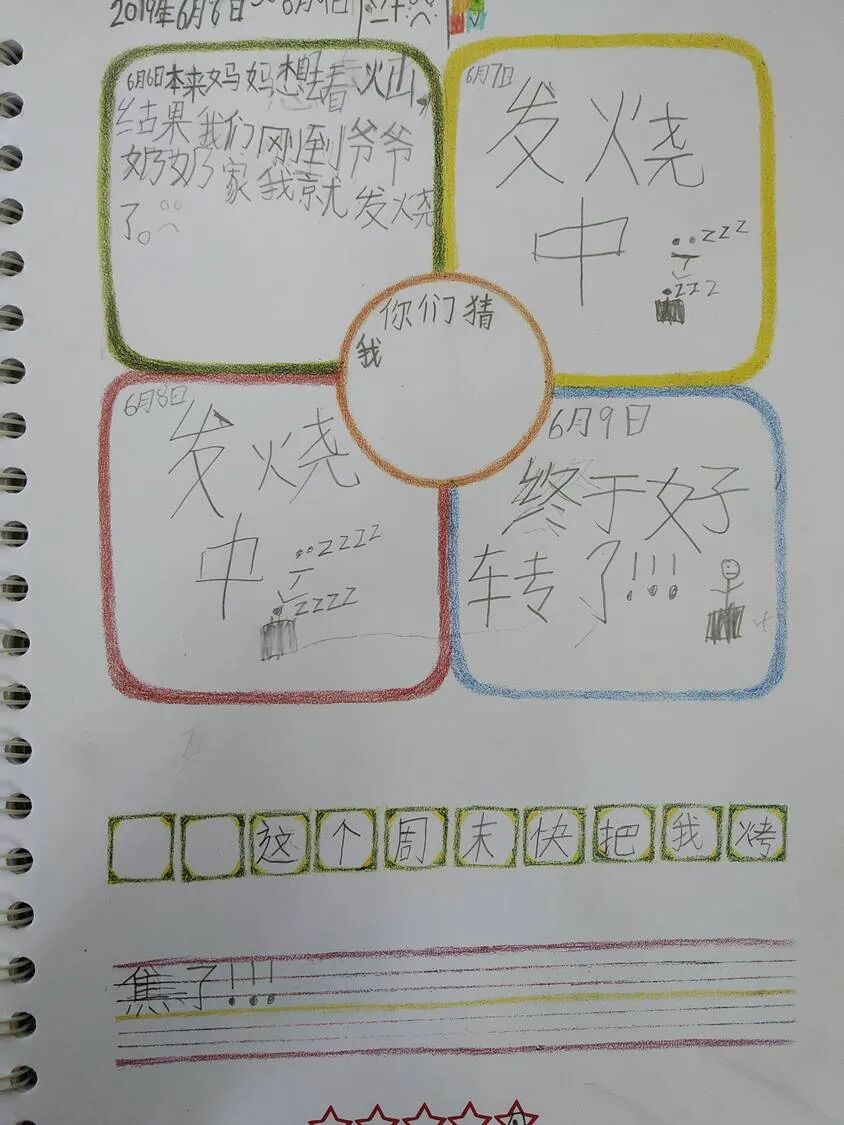 2019年6月6日
6月6日本来妈妈想去看火山,
结果我们刚到爷爷
奶奶家我就发烧
了。
6月7日
发烧
中
zzz
zzz
你们猜
我
6月8日
发烧
中
zzzz
zzzz
6月9日
终于好
转了!!!
这个周末快把我烤
焦了!!!